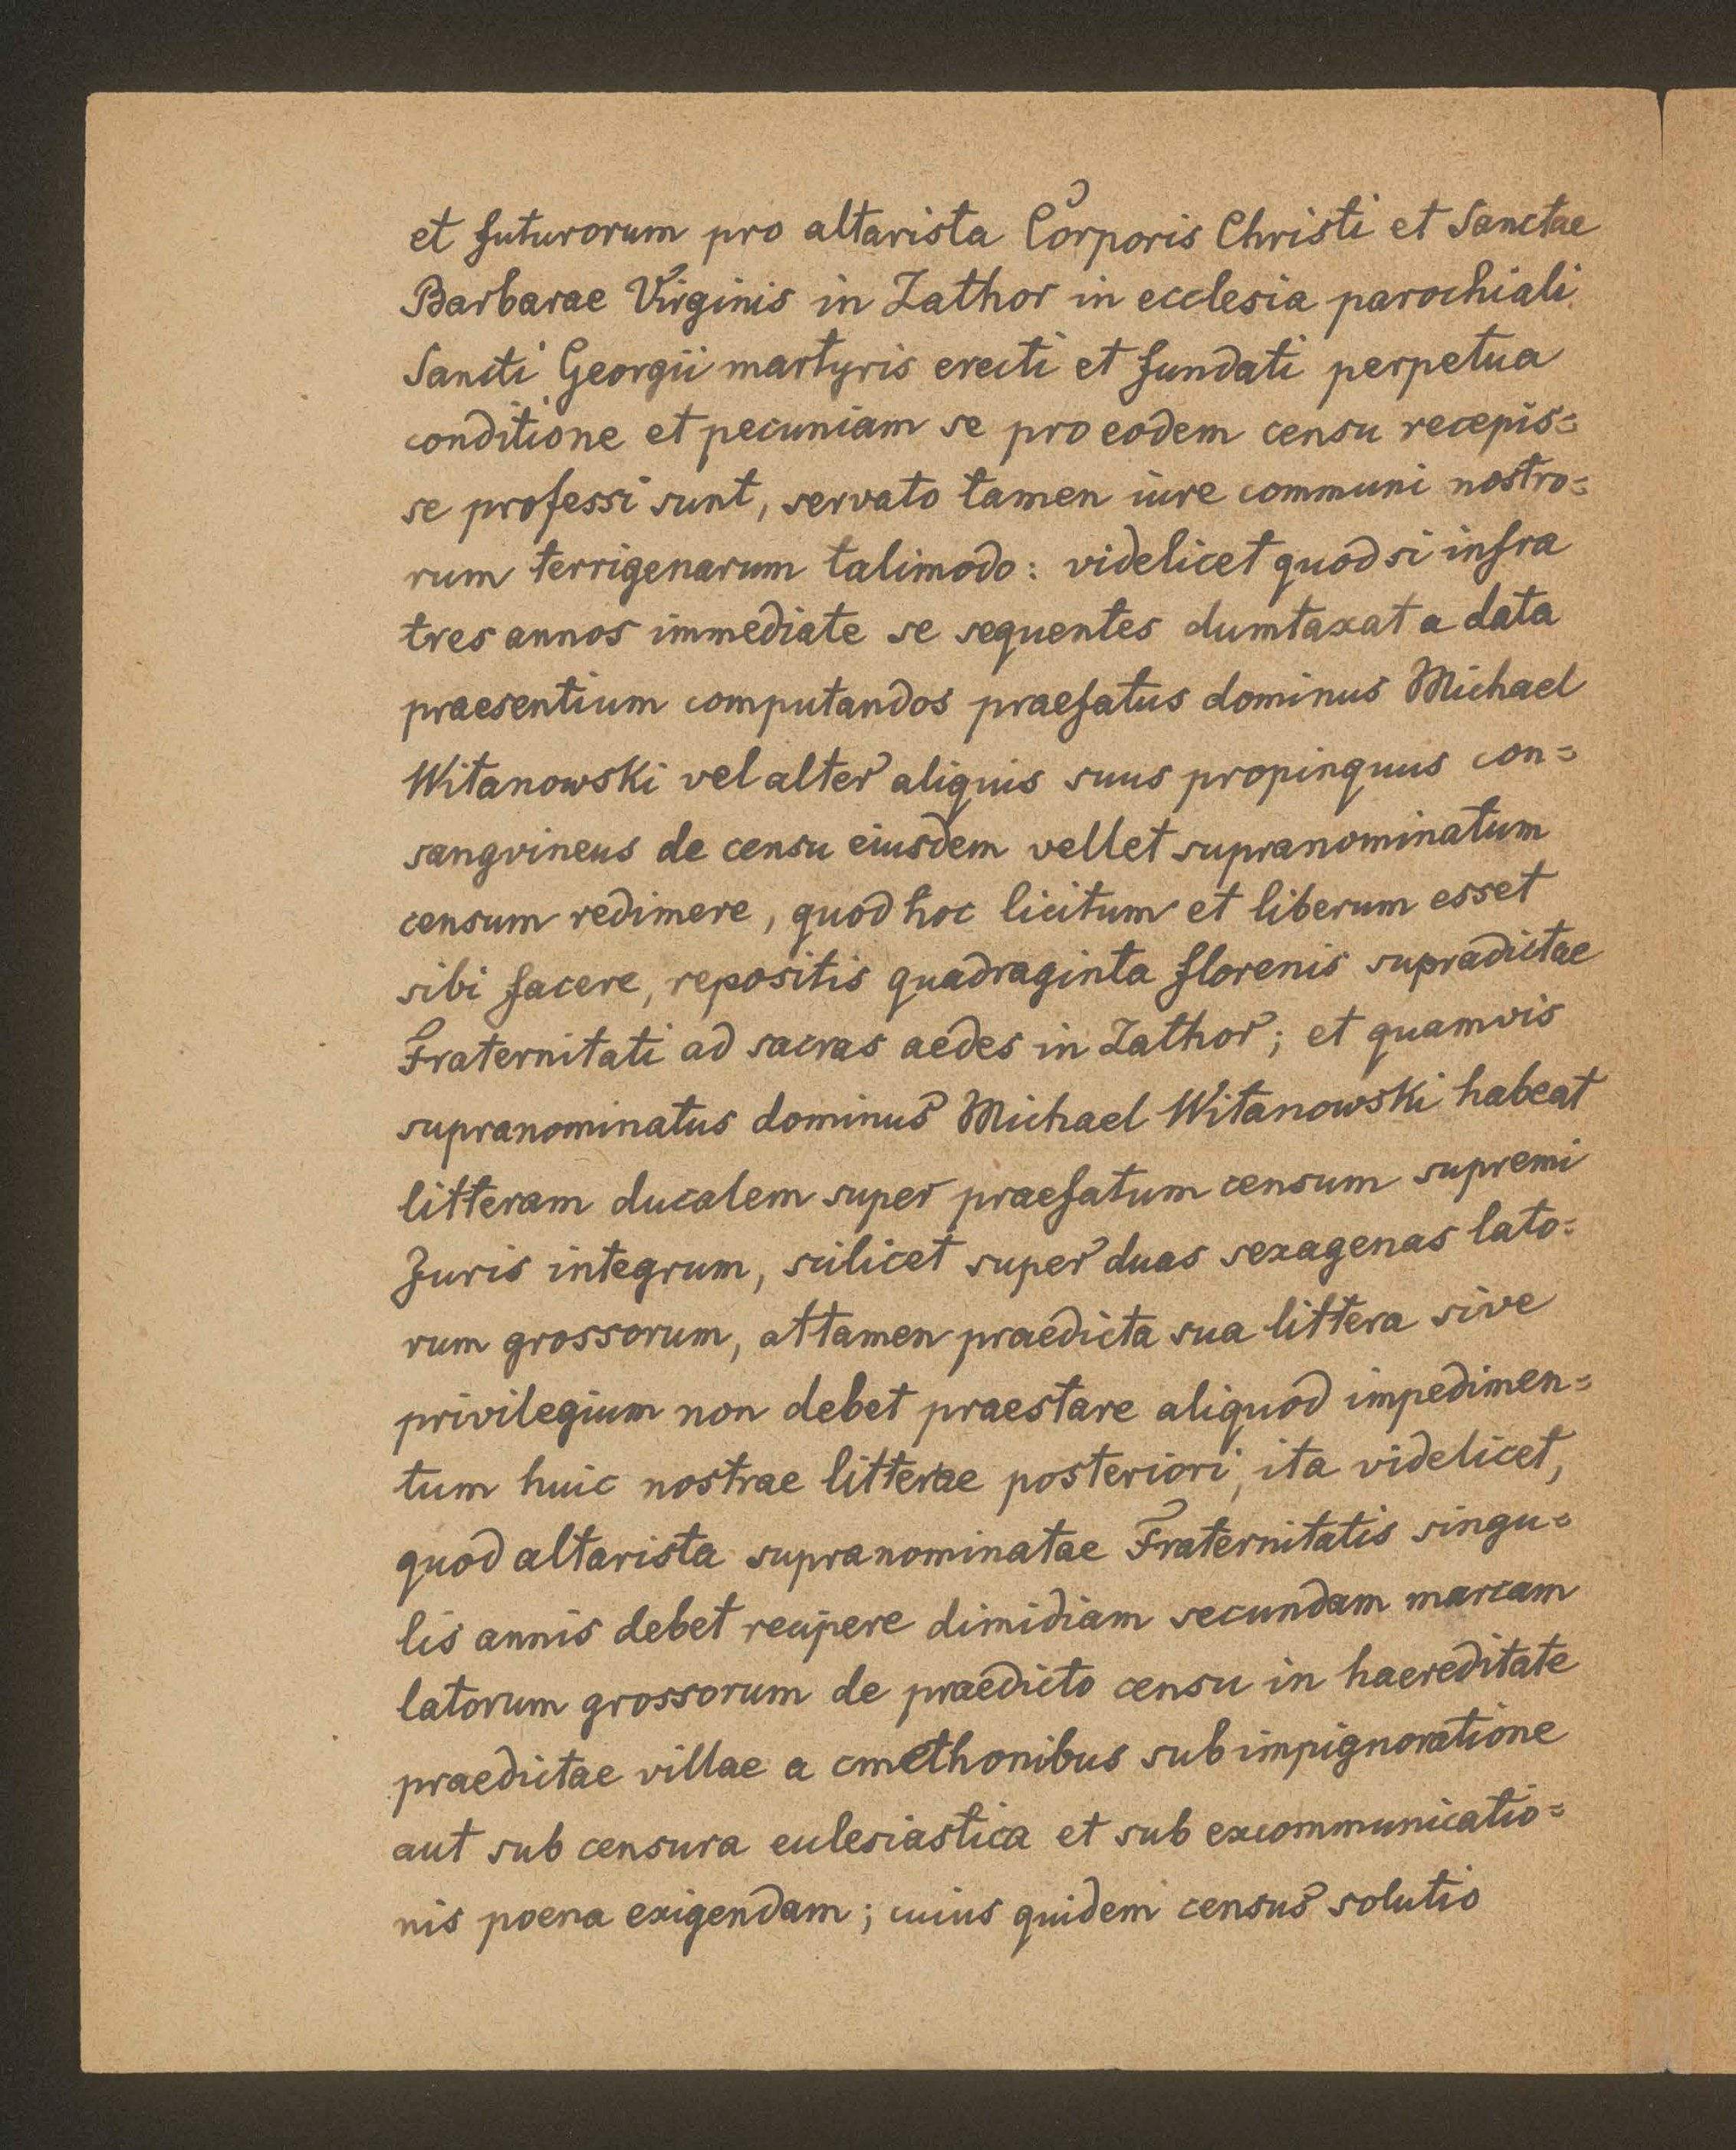 et futurorum pro altarista Corporis Christi et Sanctae
Barbarae Virginis in Zathor in ecclesia parochiali
Sancti Georgii martyris erecti et fundati perpetua
conditione et pecuniam se pro eodem censu recepis=
se professi sunt, servato tamen iure communi nostro=
rum terrigenarum talimodo: videlicet quod si infra
tres annos immediate se sequentes dumtaxat a data
praesentium computandos praefatus dominus Michael
Witanowski vel alter aliquis suus propinquus con=
sangvineus de censu eiusdem vellet supranominatum
censum redimere, quod hoc licitum et liberum esset
sibi facere, repositis quadraginta florenis supradictae
Fraternitati ad sacras aedes in Zathor; et quamvis
supranominatus dominus Michael Witanowski habeat
litteram ducalem super praefatum censum supremi
Juris integrum, scilicet super duas sexagenas lato=
rum grossorum, attamen praedicta sua littera sive
privilegium non debet praestare aliquod impedimen=
tum huic nostrae litterae posteriori, ita videlicet,
quod altarista supranominatae Fraternitatis singu=
lis annis debet recipere dimidiam secundam marcam
latorum grossorum de praedicto censu in haereditate
praedictae villae a cmethonibus sub impignoratione
aut sub censura ecclesiastica et sub excommunicatio=
nis poena exigendam; cuius quidem census solutio